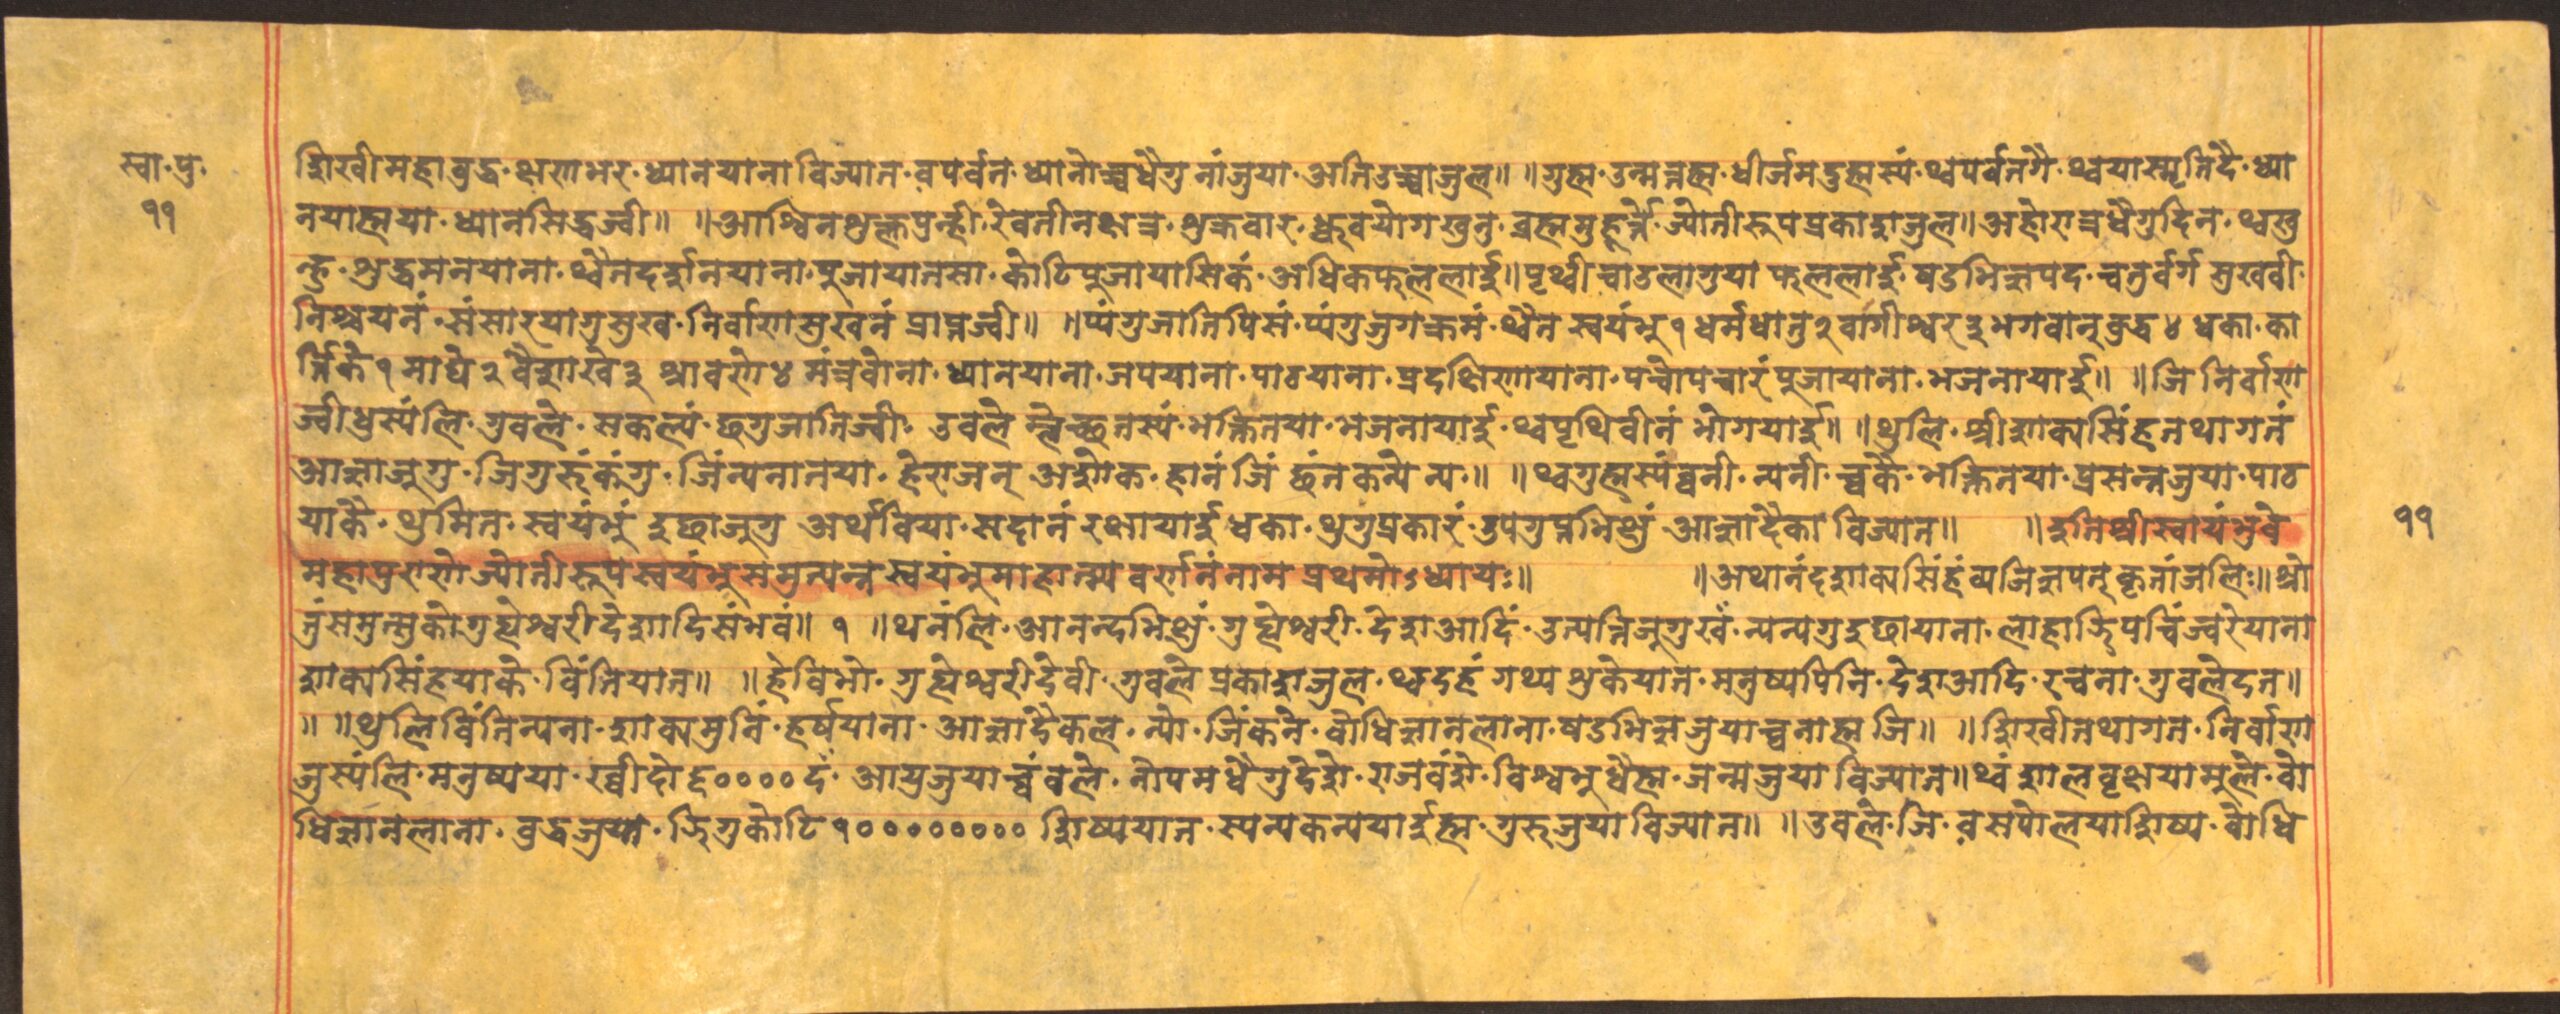 स्वा·पु·
११
शिखीमहाबुद्ध·क्षणभर·ध्यानयाना विज्यात·वपर्वत·ध्यानोच्च धैगु नांजुया·अतिउच्चाजुल॥ ॥गुह्म·उन्मत्तह्म·धीर्जमदुह्मस्यं·थ्वपर्वतगै·थ्वयास्मृतिदै·ध्या
नयाह्मया·ध्यानसिद्धज्वी॥ ॥आश्विनशुक्लपुन्ही·रेवतीनक्षत्र·शुक्रवार·ध्रुवयोगखुनु·ब्रह्ममुहूर्त्ते·ज्योतीरूपप्रकाशजुल॥अहोरात्रधैगुदिन·थ्वखु
न्हु·शुद्धमनयाना·थ्वैतदर्शनयाना·पुजायातसा·कोटिपुजायासिकं·अधिकफललाई॥पृथ्वीचाउलागुया फललाई·षडभिज्ञपद·चतुर्वर्ग सुखवी·
निश्चयनं·संसारयागुसुख·निर्वाणसुखनं प्राप्तज्वी॥ ॥प्यंगुजातिपिसं·प्यंगुजुगक्रमं·थ्वैत स्वयंभू१धर्मधातु२वागीश्वर३भगवान्बुद्ध४धका·का
र्त्तिके१माघे२वैशाखे३ श्रावणे४मंत्रवोना·ध्यानयाना·जपयाना·पाठयाना·प्रदक्षिणायाना·पचोपचारंपुजायाना·भजनायाई॥ ॥जि निर्वाण
ज्वीधुस्यंलि·गुवले·सकल्यं·छगुजातिज्वी·उवले म्लेच्छतस्यं·भक्तितया·भजनायाई·थ्वपृथिवीनं भोगयाई॥ ॥थुलि·श्रीशाक्यसिंहतथागतं
आज्ञाजूगु·जिगुरुंकंगु·जिंन्यनातया·हेराजन् अशोक·हानं जिं छंतकन्ये न्य·॥ ॥थ्वगुह्मस्यंब्वनी·न्यनी·च्वकै·भक्तितया·प्रसन्नजुया·पाठ
याकै·थुमित·स्वयंभुं इछाजूगु अर्थविया·सदानं रक्षायाई धका·थुगुप्रकारं·उपगुप्तभिक्षुं आज्ञादैका विज्यात॥ ॥इतिश्रीस्वायंभुवे
महापुराणेज्योतीरूपस्वयंभूसमुत्पन्न स्वयंभुमाहात्म्य वर्णनंनाम प्रथमोऽध्यायः॥ ॥अथानंदशाक्यसिंहंव्यजिज्ञपत् कृतांजलिः॥श्रो
तुंसमुत्सुकोगुह्येश्वरीदेशादिसंभवं॥ १ ॥थनंलि·आनन्दभिक्षुं·गुह्येश्वरी·देशआदिं·उत्पत्तिजूगुखँ·न्यन्यगुइछायाना·लाहाजिपचिंज्वरेयाना
शाक्यसिंहयाके·विंतियात॥ ॥हेविभो·गुह्येश्वरीदेवी·गुवले प्रकाशजुल·थ्वदहं गथ्य शुकेयात·मनुष्यपिनि·देशआदि·रचना·गुवलेदत॥
॥ ॥थुलि विंतिन्यना·शाक्यमुनिं·हर्षयाना·आज्ञादैकल·न्यो·जिंकने·बोधिज्ञानलाना·षडभिज्ञजुयाच्वनाह्म जि॥ ॥शिखीतथागत·निर्वाण
जुस्यंलि·मनुष्यया·ख्वीदोद्व००००दँ·आयुजुया च्वंवले·नोपमधैगुदेशे·राजवंशे·विश्वभुधैह्म·जन्मजुया विज्यात॥थ्वं शालवृक्षयामुले·बो
धिज्ञानलाना·बुद्धजुया·जिगुकोटि१०००००००० शिष्ययात·स्यन्यकन्ययाईह्म·गुरुजुया विज्यात॥ ॥उवले·जि·वसपोलयाशिष्य·बोधि
११